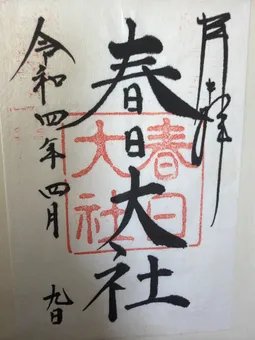 奉拝
春日大社
春日
大社
令和四年四月九日